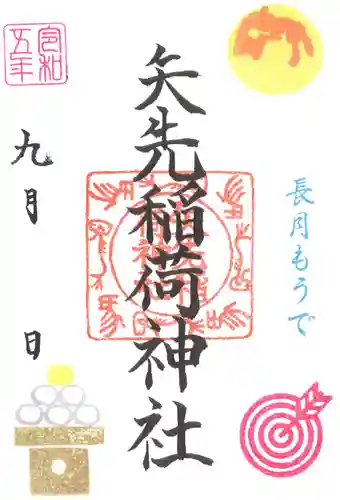 令和
五年
長月もうで
矢先稲荷神社
九月 日